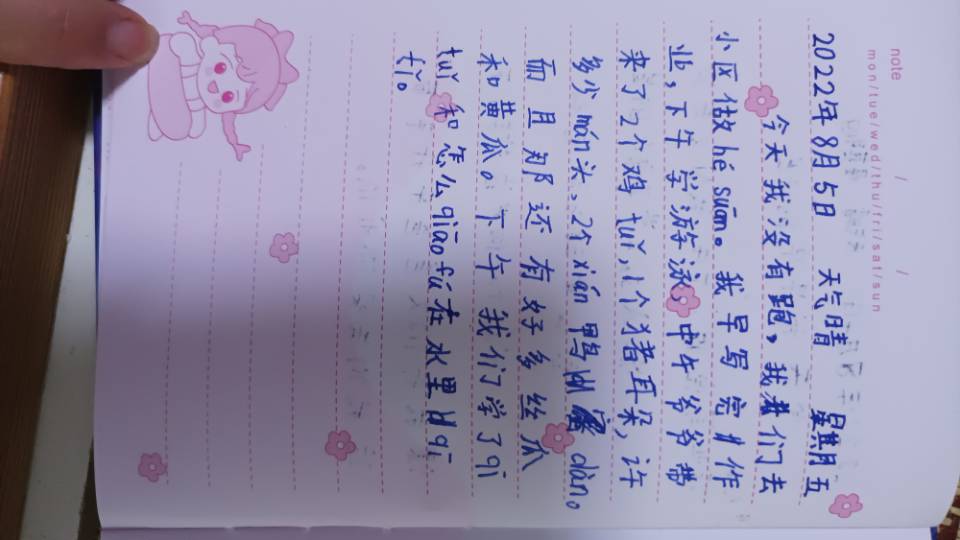 note
mon/tue/wed/thu/fri/sat/sun
2022年8月5日 天气晴 星期五
今天我没有跑,我们去
小区做hé suān。我早写完作
业,下午学游泳,中午爷爷带
来了2个鸡tuǐ,1个猪耳朵,许
多少mán头,2个xián鸭dàn。
而且那还有好多丝瓜
和黄瓜。下午我们学了qī
tuǐ和怎么qiāo fú在水里qī
tǐ。